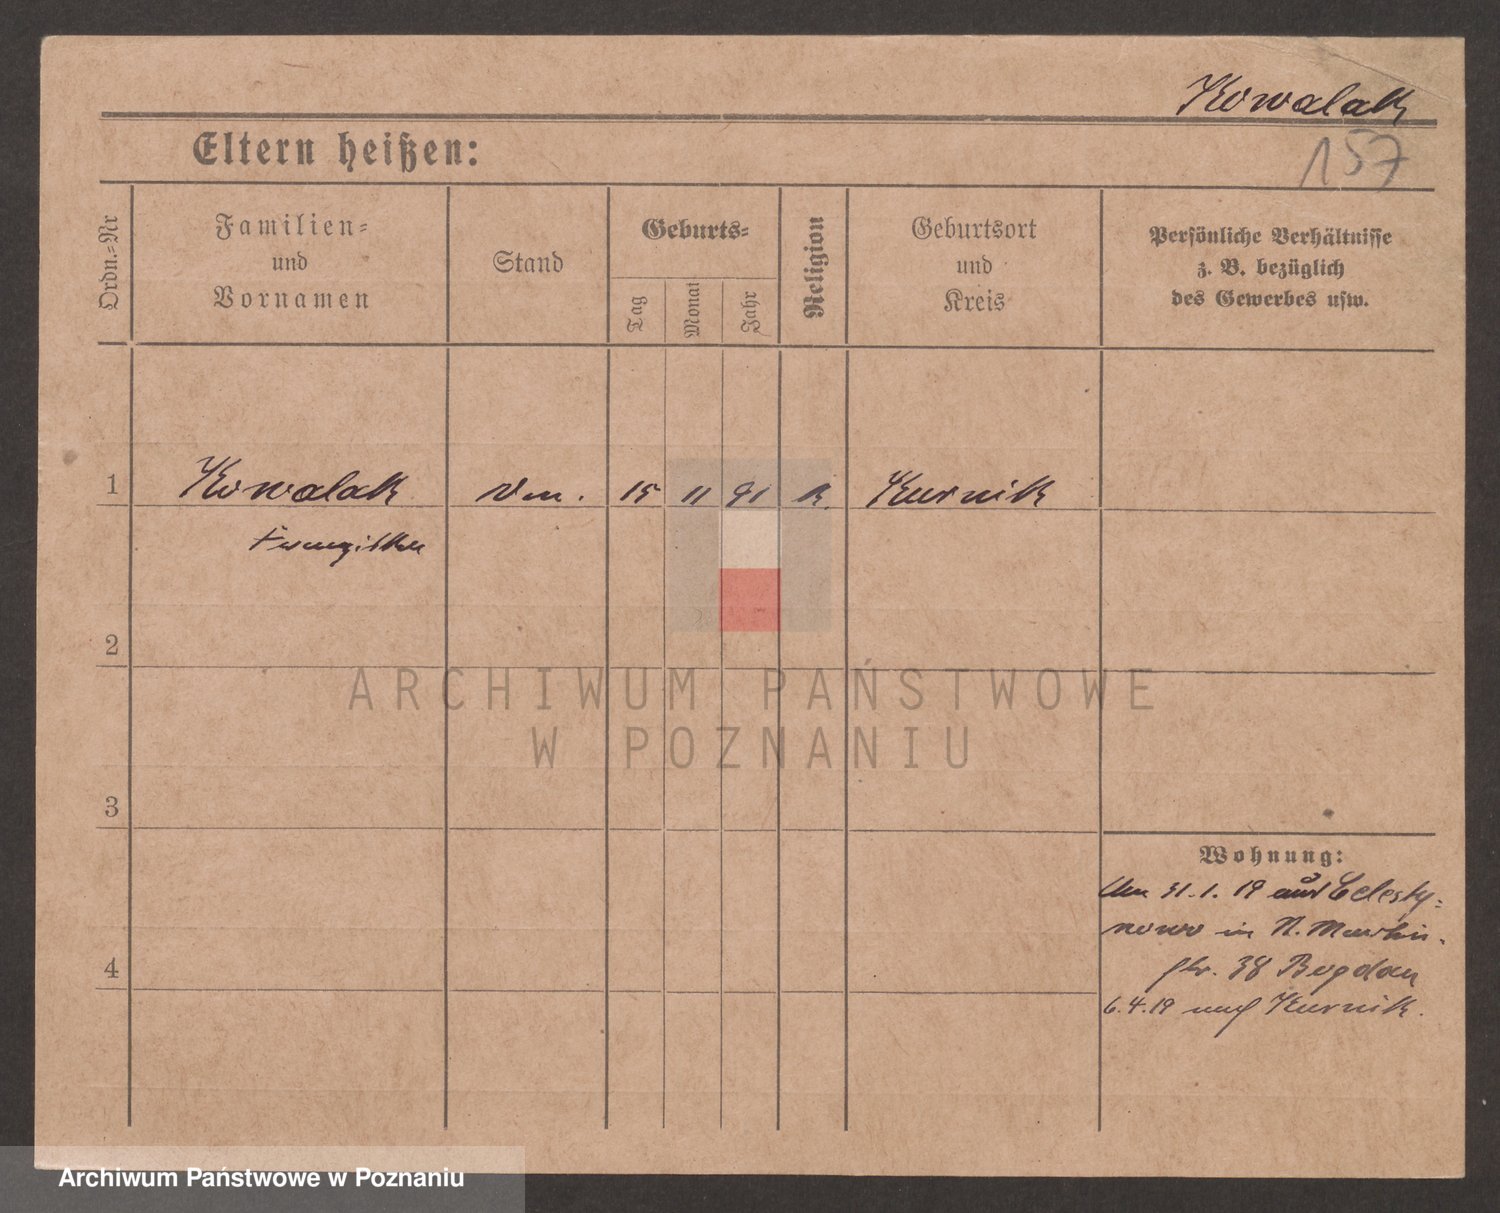 Kowalak
157
Eltern heißen:
Ordn.-Nr
Familien-
und
Vornamen
Stand
Geburts-
Tag
Monat
Jahr
Religion
Geburtsort
und
Kreis
Persönliche Verhältnisse
z. B. bezüglich
des Gewerbes usw.
1 Kowalak 15 11 91 k. Kurnik
Franziska
2
3
4
Wohnung:
31.1.19 aus Celesty-
nowo in St. Martin-
str. 38 Bogdan
6.4.19 nach Kurnik.
ARCHIWUM PAŃSTWOWE
W POZNANIU
Archiwum Państwowe w Poznaniu